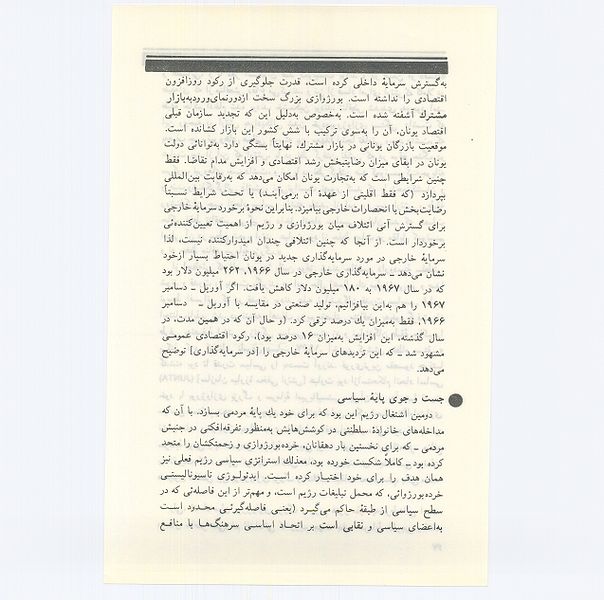 به‌گسترش سرمایهٔ داخلی کرده است، قدرت جلوگیری از رکود روزافزون
اقتصادی را نداشته است. بورژوازی بزرگ سخت ازدورنمای‌ورودبه‌بازار
مشترك آشفته شده است. به‌خصوص به‌دلیل این که تجدید سازمان قبلی
اقتصاد یونان، آن را به‌سوی ترکیب با شش کشور این بازار کشانده است.
موقعیت بازرگان یونانی در بازار مشترك، نهایتاً بستگی دارد به‌توانائی دولت
یونان در ابقای میزان رضایتبخش رشد اقتصادی و افزایش مدام تقاضا. فقط
چنین شرایطی است که به‌تجارت یونان امکان می‌دهد که به‌رقابت بین‌المللی
بپردازد (که فقط اقلیتی از عهدهٔ آن برمی‌آینـد) یا تحـت شرایط نسبتـاً
رضایت‌بخش با انحصارات خارجی بیامیزد. بنابراین نحوهٔ برخورد سرمایهٔ خارجی
برای گسترش آتی ائتلاف میان بورژوازی و رژیم از اهمیت تعیین‌کننده‌ئی
برخوردار است. از آنجا که چنین ائتلافی چندان امیدوارکننده نیست، لذا
سرمایهٔ خارجی در مورد سرمایه‌گذاری جدید در یونان احتیاط بسیار ازخود
نشان می‌دهد ـ سرمایه‌گذاری خارجی در سال ۱۹۶۶، ۲۶۲ میلیون دلار بود
که در سال ۱۹۶۷ به ۱۸۰ میلیون دلار کاهش یافت. اگر آوریل ـ دسامبر
۱۹۶۷ را هم به‌این بیافزائیم، تولید صنعتی در مقایسه با آوریل ـ دسامبر
۱۹۶۶، فقط به‌میزان یك درصد ترقی کرد. (و حال آن که در همین مدت، در
سال گذشته، این افزایش به‌میزان ۱۶ درصد بود)، رکود اقتصادی عمومـی
مشهود شد ـ که این تردیدهای سرمایهٔ خارجی را [در سرمایه‌گذاری] توضیح
می‌دهد.
● جست و جوی پایهٔ سیاسی
دومین اشتغال رژیم این بود که برای خود یك پایهٔ مردمی بسازد. با آن که
مداخله‌های خانوادهٔ سلطنتی در کوشش‌هایش به‌منظور تفرقه‌افکنی در جنبش
مردمی ـ که برای نخستین بار دهقانان، خرده‌بورژوازی و زحمتکشان را متحد
کرده بود ـ کاملاً شکست خورده بود، معذلك استراتژی سیاسی رژیم فعلی نیز
همان هدف را برای خود اختیـار کرده اسـت. ایدئولـوژی ناسیونالیستـی
خرده‌بورژوائی، که محمل تبلیغات رژیم است، و مهم‌تر از این فاصله‌ئی که در
سطح سیاسی از طبقهٔ حاکم می‌گیـرد (یعنـی فاصله‌گیرئـی محـدود اسـت
به‌اعضای سیاسی و نقابی است بر اتحـاد اساسـی سرهنگ‌هـا با منافـع